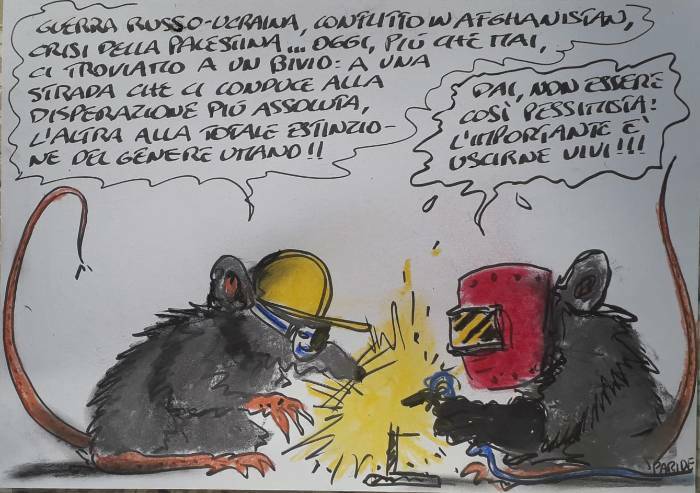 GUERRA RUSSO-UCRAINA, CONFLITTO IN AFGHANISTAN,
CRISI DELLA PALESTINA... OGGI, PIÙ CHE MAI,
CI TROVIAMO A UN BIVIO: A UNA
STRADA CHE CI CONDUCE ALLA
DISPERAZIONE PIÙ ASSOLUTA,
L'ALTRA ALLA TOTALE ESTINZIO-
NE DEL GENERE UMANO!!
DAI, NON ESSERE
COSÌ PESSIMISTA:
L'IMPORTANTE È
USCIRNE VIVI!!!
PARIDE